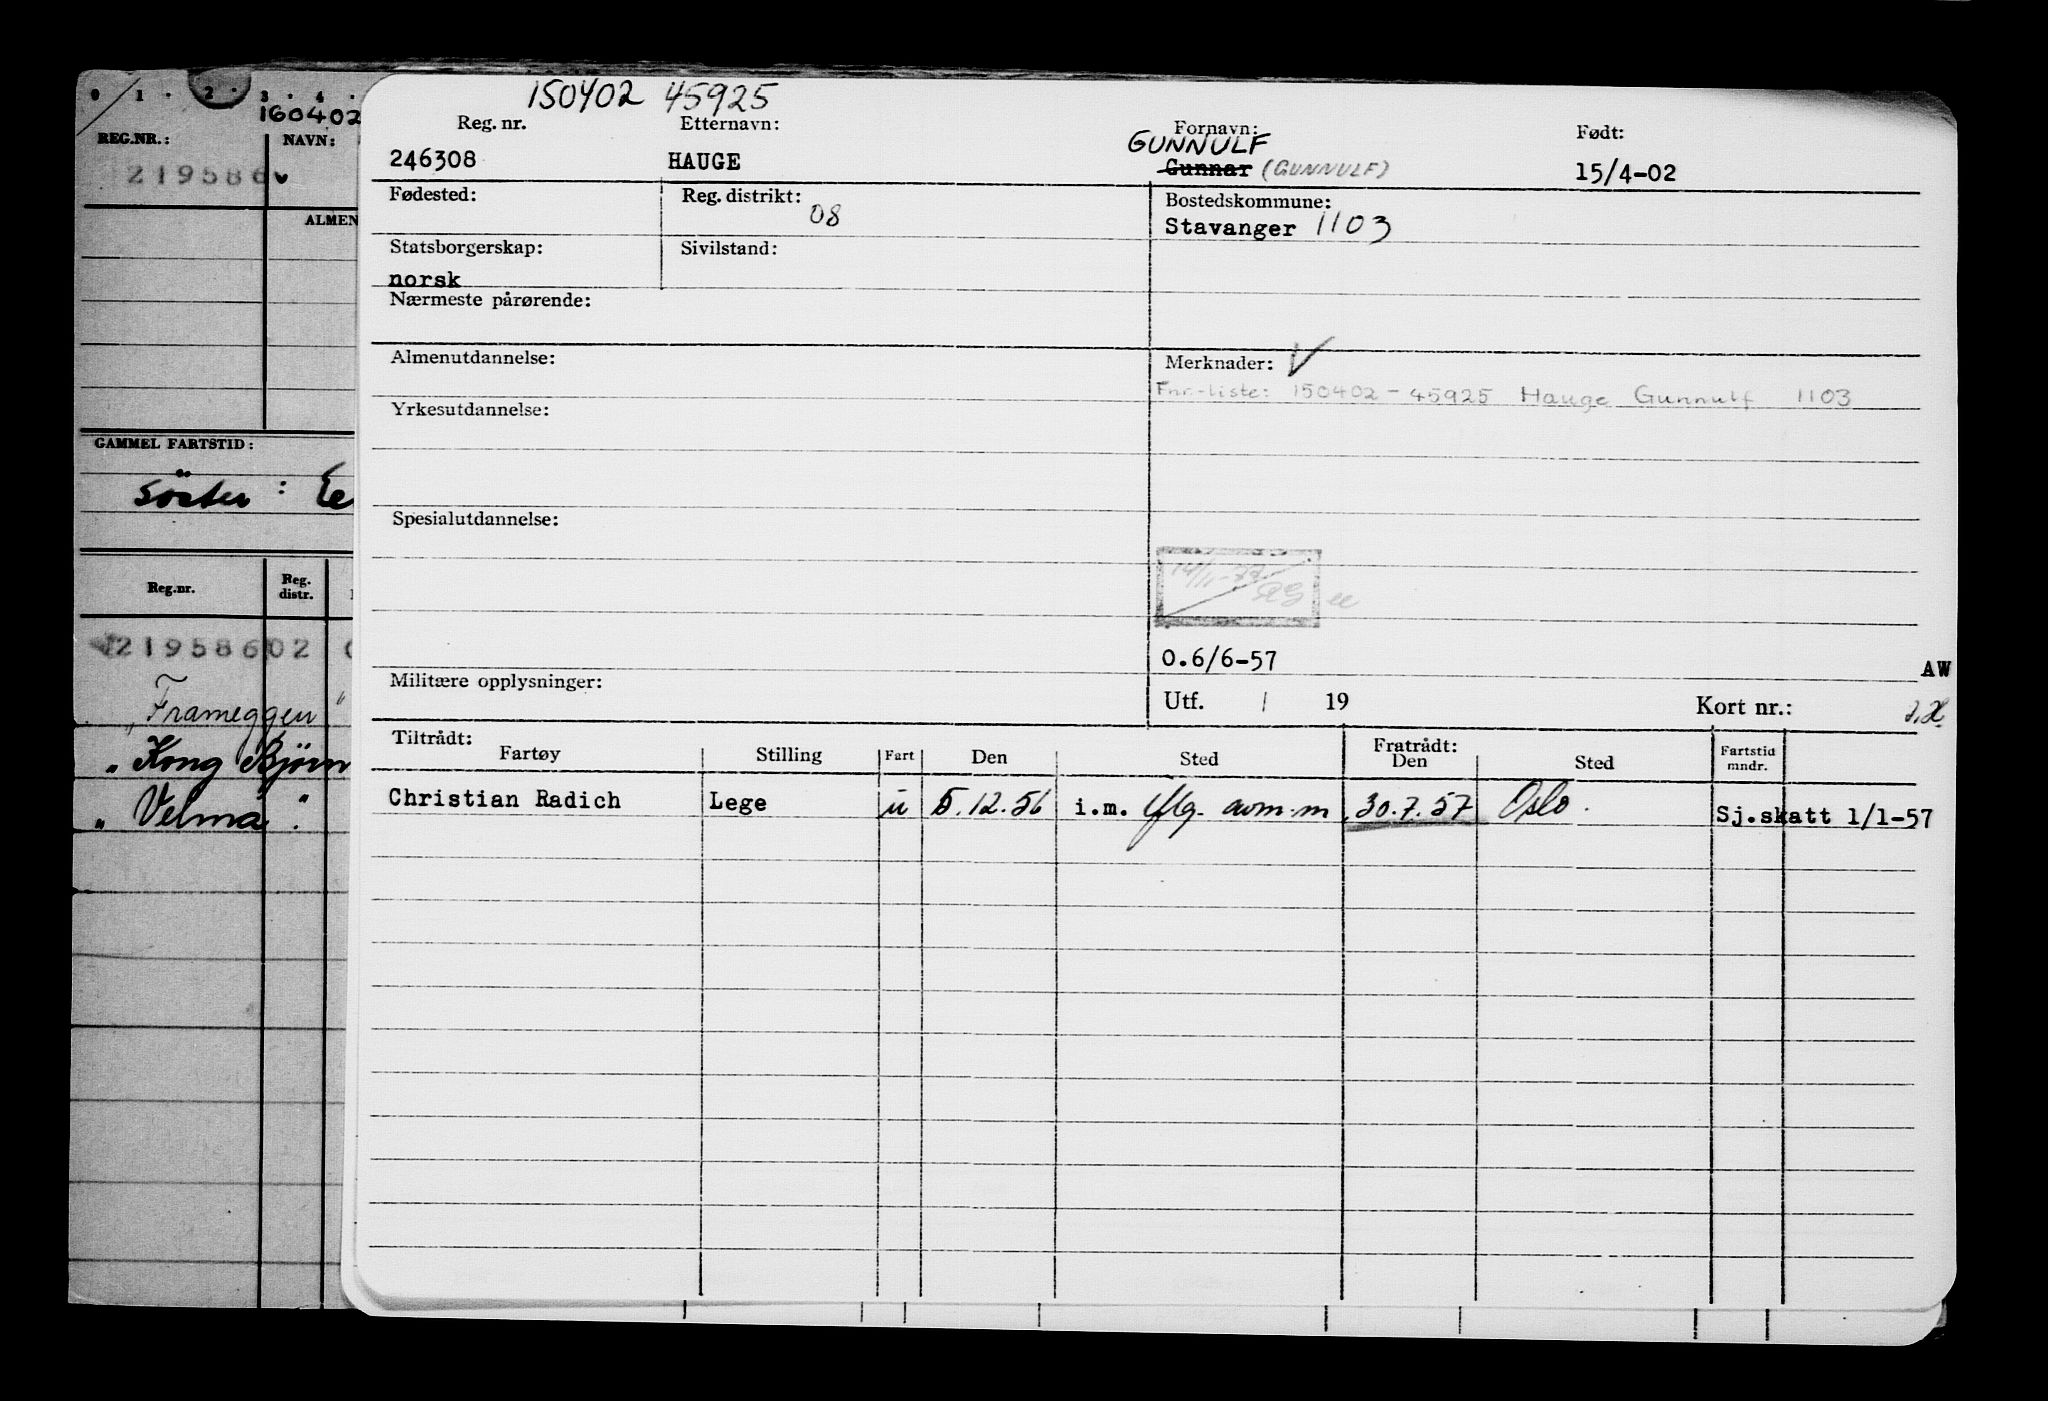 0 1 . 2 . 3 . 4 .
160402
REG.NR.: NAVN:
219586
ALMEN
GAMMEL FARTSTID:
söster : Ee
Reg.nr. Reg. distr.
219586 02
" Frameggen "
" Kong Bjørn
" Velma "
150402 45925
Reg. nr. Etternavn: Fornavn: Født:
GUNNULF
246308 HAUGE Gunnar (GUNNULF) 15/4-02
Fødested: Reg. distrikt: 08 Bostedskommune:
Stavanger 1103
Statsborgerskap: Sivilstand:
norsk
Nærmeste pårørende:
Almenutdannelse: Merknader: ✓
Fnr.-liste: 150402-45925 Hauge Gunnulf 1103
Yrkesutdannelse:
Spesialutdannelse:
0.6/6-57 AW
Militære opplysninger: Utf. / 19 Kort nr.:
Tiltrådt: Fratrådt:
Fartøy Stilling Fart Den Sted Den Sted Fartstid mndr.
Christian Radich Lege u 5.12.56 i.m. flg. avm.m 30.7.57 Oslo. Sj.skatt 1/1-57